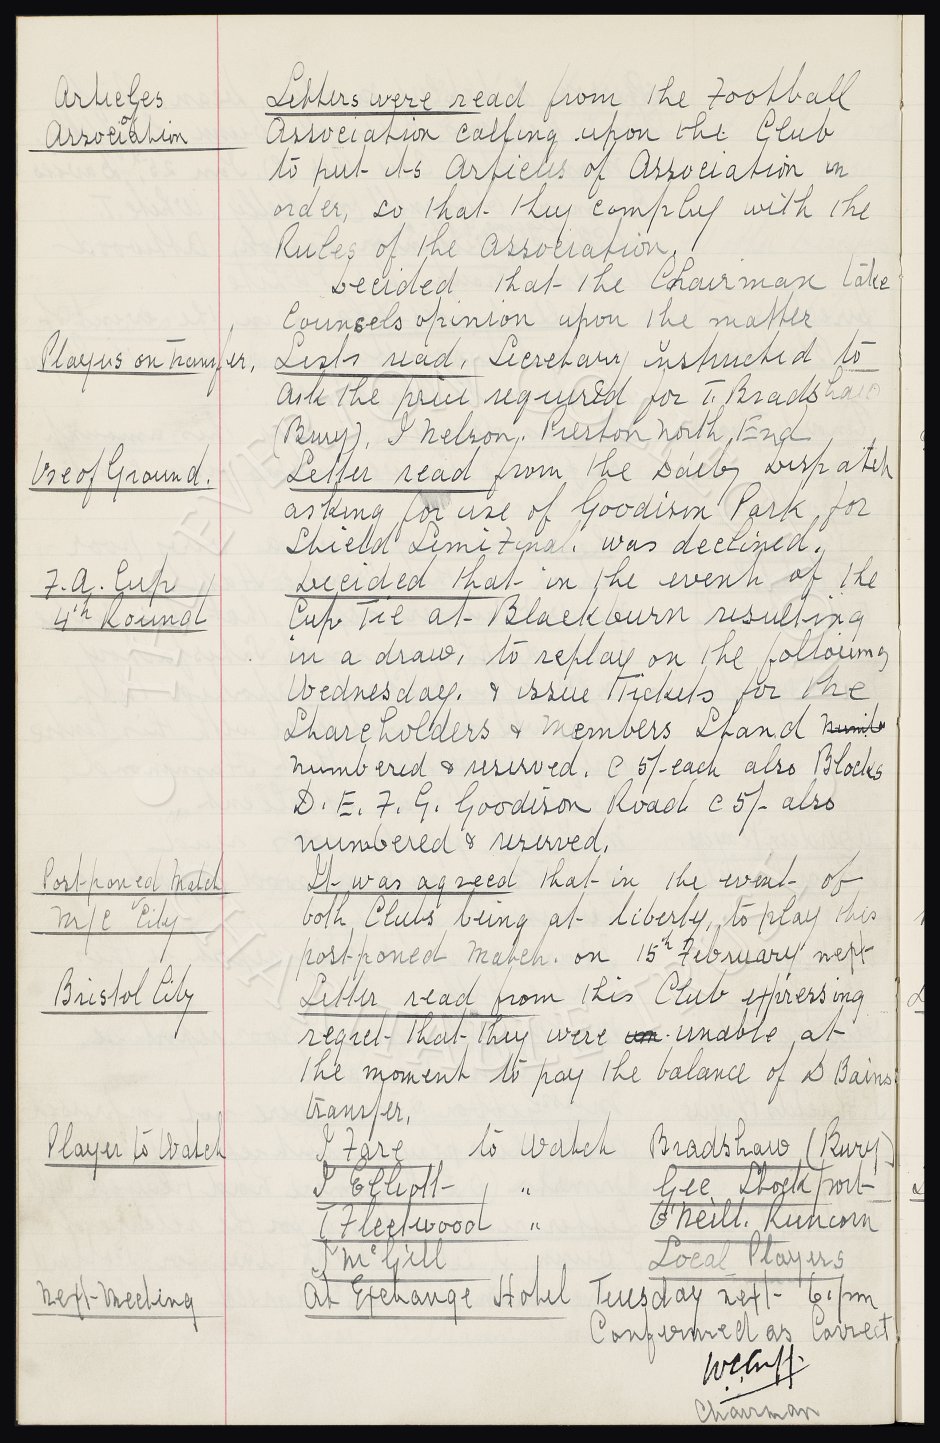 Articles
of
Association
Letters were read from the Football
Association calling upon the Club
to put its Articles of Association in
order, so that they comply with the
Rules of the Association.
Decided that the Chairman take
Counsels opinion upon the matter
Players on Transfer.
Lists read. Secretary instructed to
ask the price required for T. Bradshaw
(Bury), J Nelson, Preston North End
Use of Ground.
Letter read from the Daily Dispatch
asking for use of Goodison Park for
Shield Semi Final. was declined.
F.A. Cup
4th Round
Decided that in the event of the
Cup Tie at Blackburn resulting
in a draw, to replay on the following
Wednesday. & issue Tickets for the
Shareholders & Members Stand
numbered & reserved. @ 5/- each also Blocks
D. E. F. G. Goodison Road @ 5/- also
numbered & reserved.
Postponed Match
M/C City
It was agreed that in the event of
both Clubs being at liberty, to play this
postponed match on 15th February next
Bristol City
Letter read from this Club expressing
regret that they were unable at
the moment to pay the balance of D Bains
transfer.
Player to Watch
J Fare to watch Bradshaw (Bury)
J Elliott " Gee Stockport
T Fleetwood " O'Neill. Runcorn
J McGill Local Players
Next Meeting
At Exchange Hotel Tuesday next 6. pm
Confirmed as Correct
W.C.Cuff.
Chairman